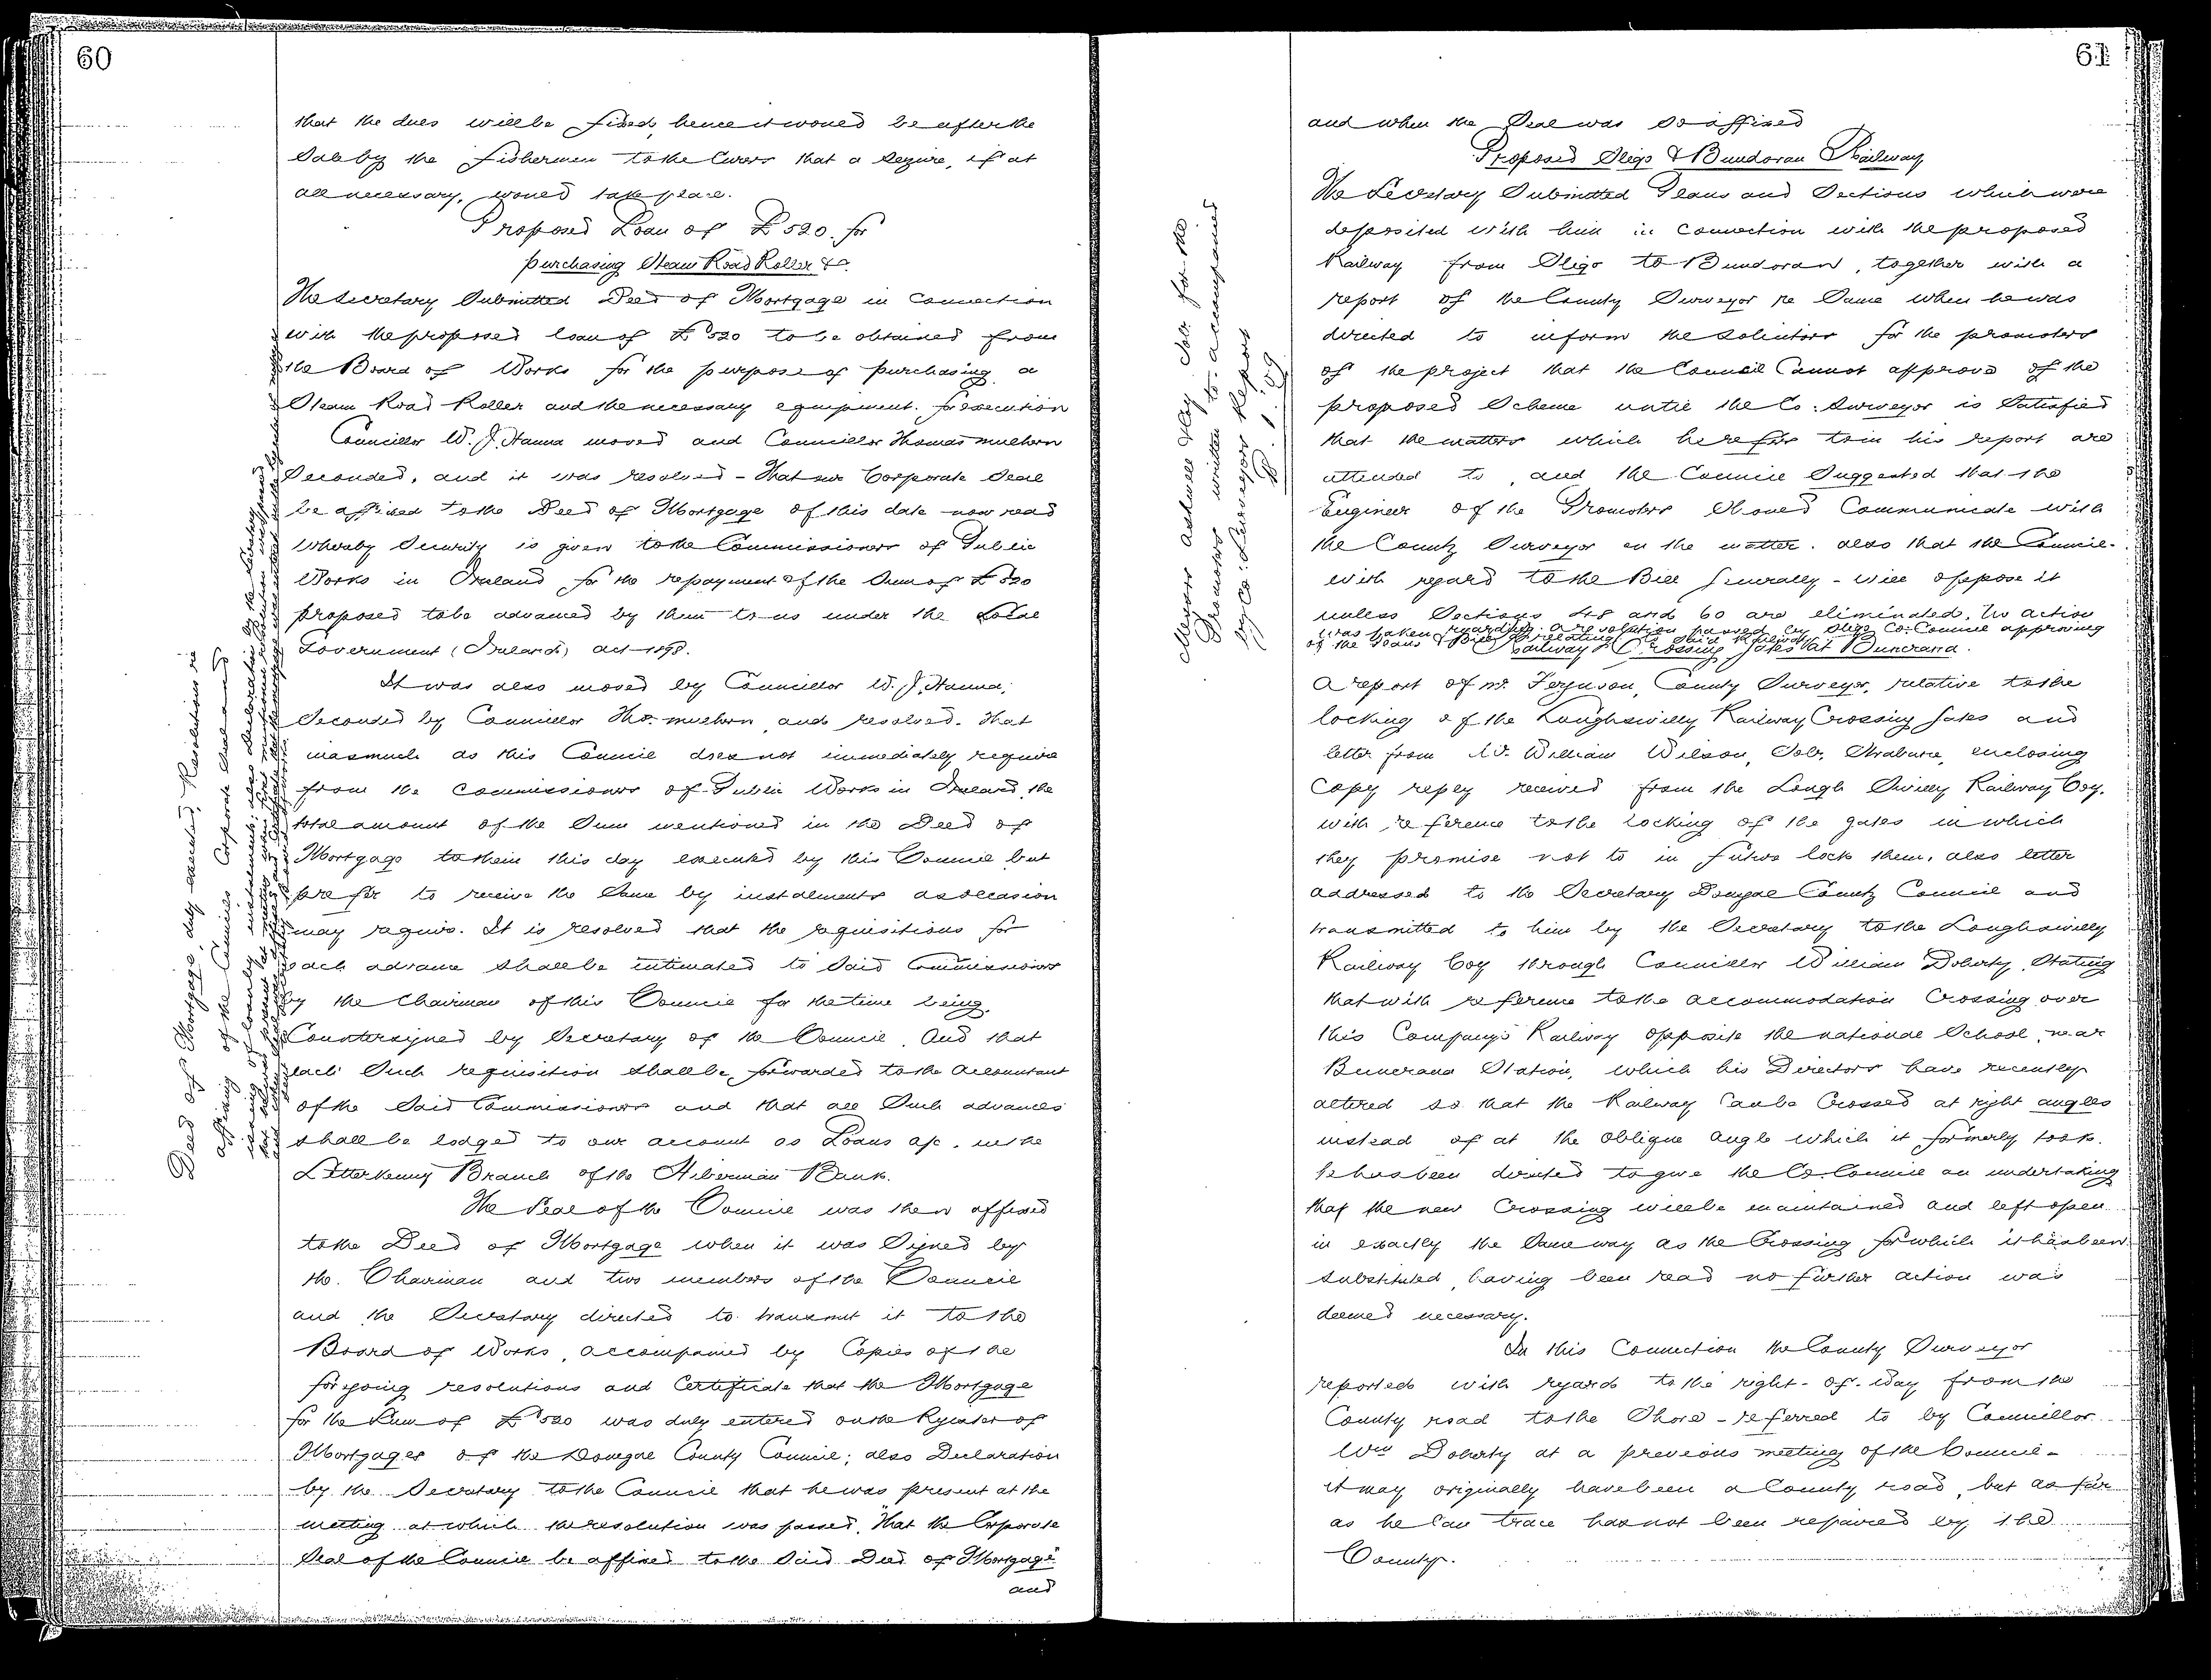 60
that the dues will be fixed, hence it would be after the
Sale by the fishermen to the Curers that a Seizure, if at
all necessary, would take place.
Proposed Loan of £520. for
purchasing Steam Road Roller &c.
The Secretary Submitted Deed of Mortgage in Connection
with the proposed loan of £520 to be obtained from
the Board of Works for the purpose of purchasing a
Steam Road Roller and the necessary equipment. for execution
Councillor W. J. Hanna moved and Councillor Thomas
Seconded, and it was resolved - That our Corporate Seal
be affixed to the Deed of Mortgage of this date now read
Whereby Security is given to the Commissioners of Public
Works in Ireland for the repayment of the Sum of £520
proposed to be advanced by them to us under the Local
Government (Ireland) Act 1898.
It was also moved by Councillor W. J. Hanna,
Seconded by Councillor Tho. and resolved. That
inasmuch as this Council does not immediately require
from the Commissioners of Public Works in Ireland, the
total amount of the Sum mentioned in the Deed of
Mortgage to them this day executed by this Council but
prefer to receive the Same by instalments as occasion
may require. It is resolved that the requisitions for
each advance shall be intimated to Said Commissioners
by the Chairman of this Council for the time being,
Countersigned by Secretary of the Council. And that
each Such requisition shall be forwarded to the Accountant
of the Said Commissioners and that all Such advances
shall be lodged to our account as Loans a/c. in the
Letterkenny Branch of the Hibernian Bank.
The Seal of the Council was then affixed
to the Deed of Mortgage when it was Signed by
the Chairman and two members of the Council
and the Secretary directed to transmit it to the
Board of Works, accompanied by Copies of the
foregoing resolutions and Certificate that the Mortgage
for the Sum of £520 was duly entered on the Register of
Mortgages of the Donegal County Council; also Declaration
by the Secretary to the Council that he was present at the
meeting at which the resolution was passed, That the Corporate
Seal of the Council be affixed to the Said Deed of Mortgage
and
Deed of Mortgage duly executed, Resolutions re
affixing of the Council's Corporate Seal and
61
and when the Seal was So affixed
Proposed Sligo & Bundoran Railway
The Secretary Submitted Plans and Sections which were
deposited with him in Connection with the proposed
Railway from Sligo to Bundoran, together with a
report of the County Surveyor re Same when he was
directed to inform the Solicitors for the promoters
of the project that the Council Cannot approve of the
proposed Scheme until the Co: Surveyor is Satisfied
that the matters which he refers to in his report are
attended to, and the Council Suggested that the
Engineer of the Promoters Should Communicate with
the County Surveyor on the matter. also that the Council
with regard to the Bill generally - will oppose it
unless Sections 48 and 60 are eliminated. No action
was taken regarding a resolution passed by Sligo Co: Council approving
of the Plans & Bill relating to Said Railway.
Railway Crossing Gates at Buncrana.
A report of Mr. Ferguson, County Surveyor, relative to the
locking of the Loughswilly Railway Crossing Gates and
letter from Mr. William Wilson, Solr. Strabane, enclosing
Copy reply received from the Lough Swilly Railway Coy.
with reference to the locking of the gates in which
they promise not to in future lock them, also letter
addressed to the Secretary Donegal County Council and
transmitted to him by the Secretary to the Loughswilly
Railway Coy through Councillor William Doherty, Stating
that with reference to the accommodation Crossing over
this Company's Railway opposite the National School, near
Buncrana Station, which his Directors have recently
altered so that the Railway Can be Crossed at right angles
instead of at the oblique angle which it formerly took.
he has been directed to give the Co. Council an undertaking
that the new Crossing will be maintained and left open
in exactly the Same way as the Crossing for which it has been
substituted, having been read no further action was
deemed necessary.
In this Connection the County Surveyor
reported with regard to the right-of-way from the
County road to the Shore - referred to by Councillor
Wm Doherty at a previous meeting of the Council -
it may originally have been a County road, but as far
as he Can trace has not been repaired by the
County.
Solr for the
Promoters written to accompanied
by Co: Surveyors Report